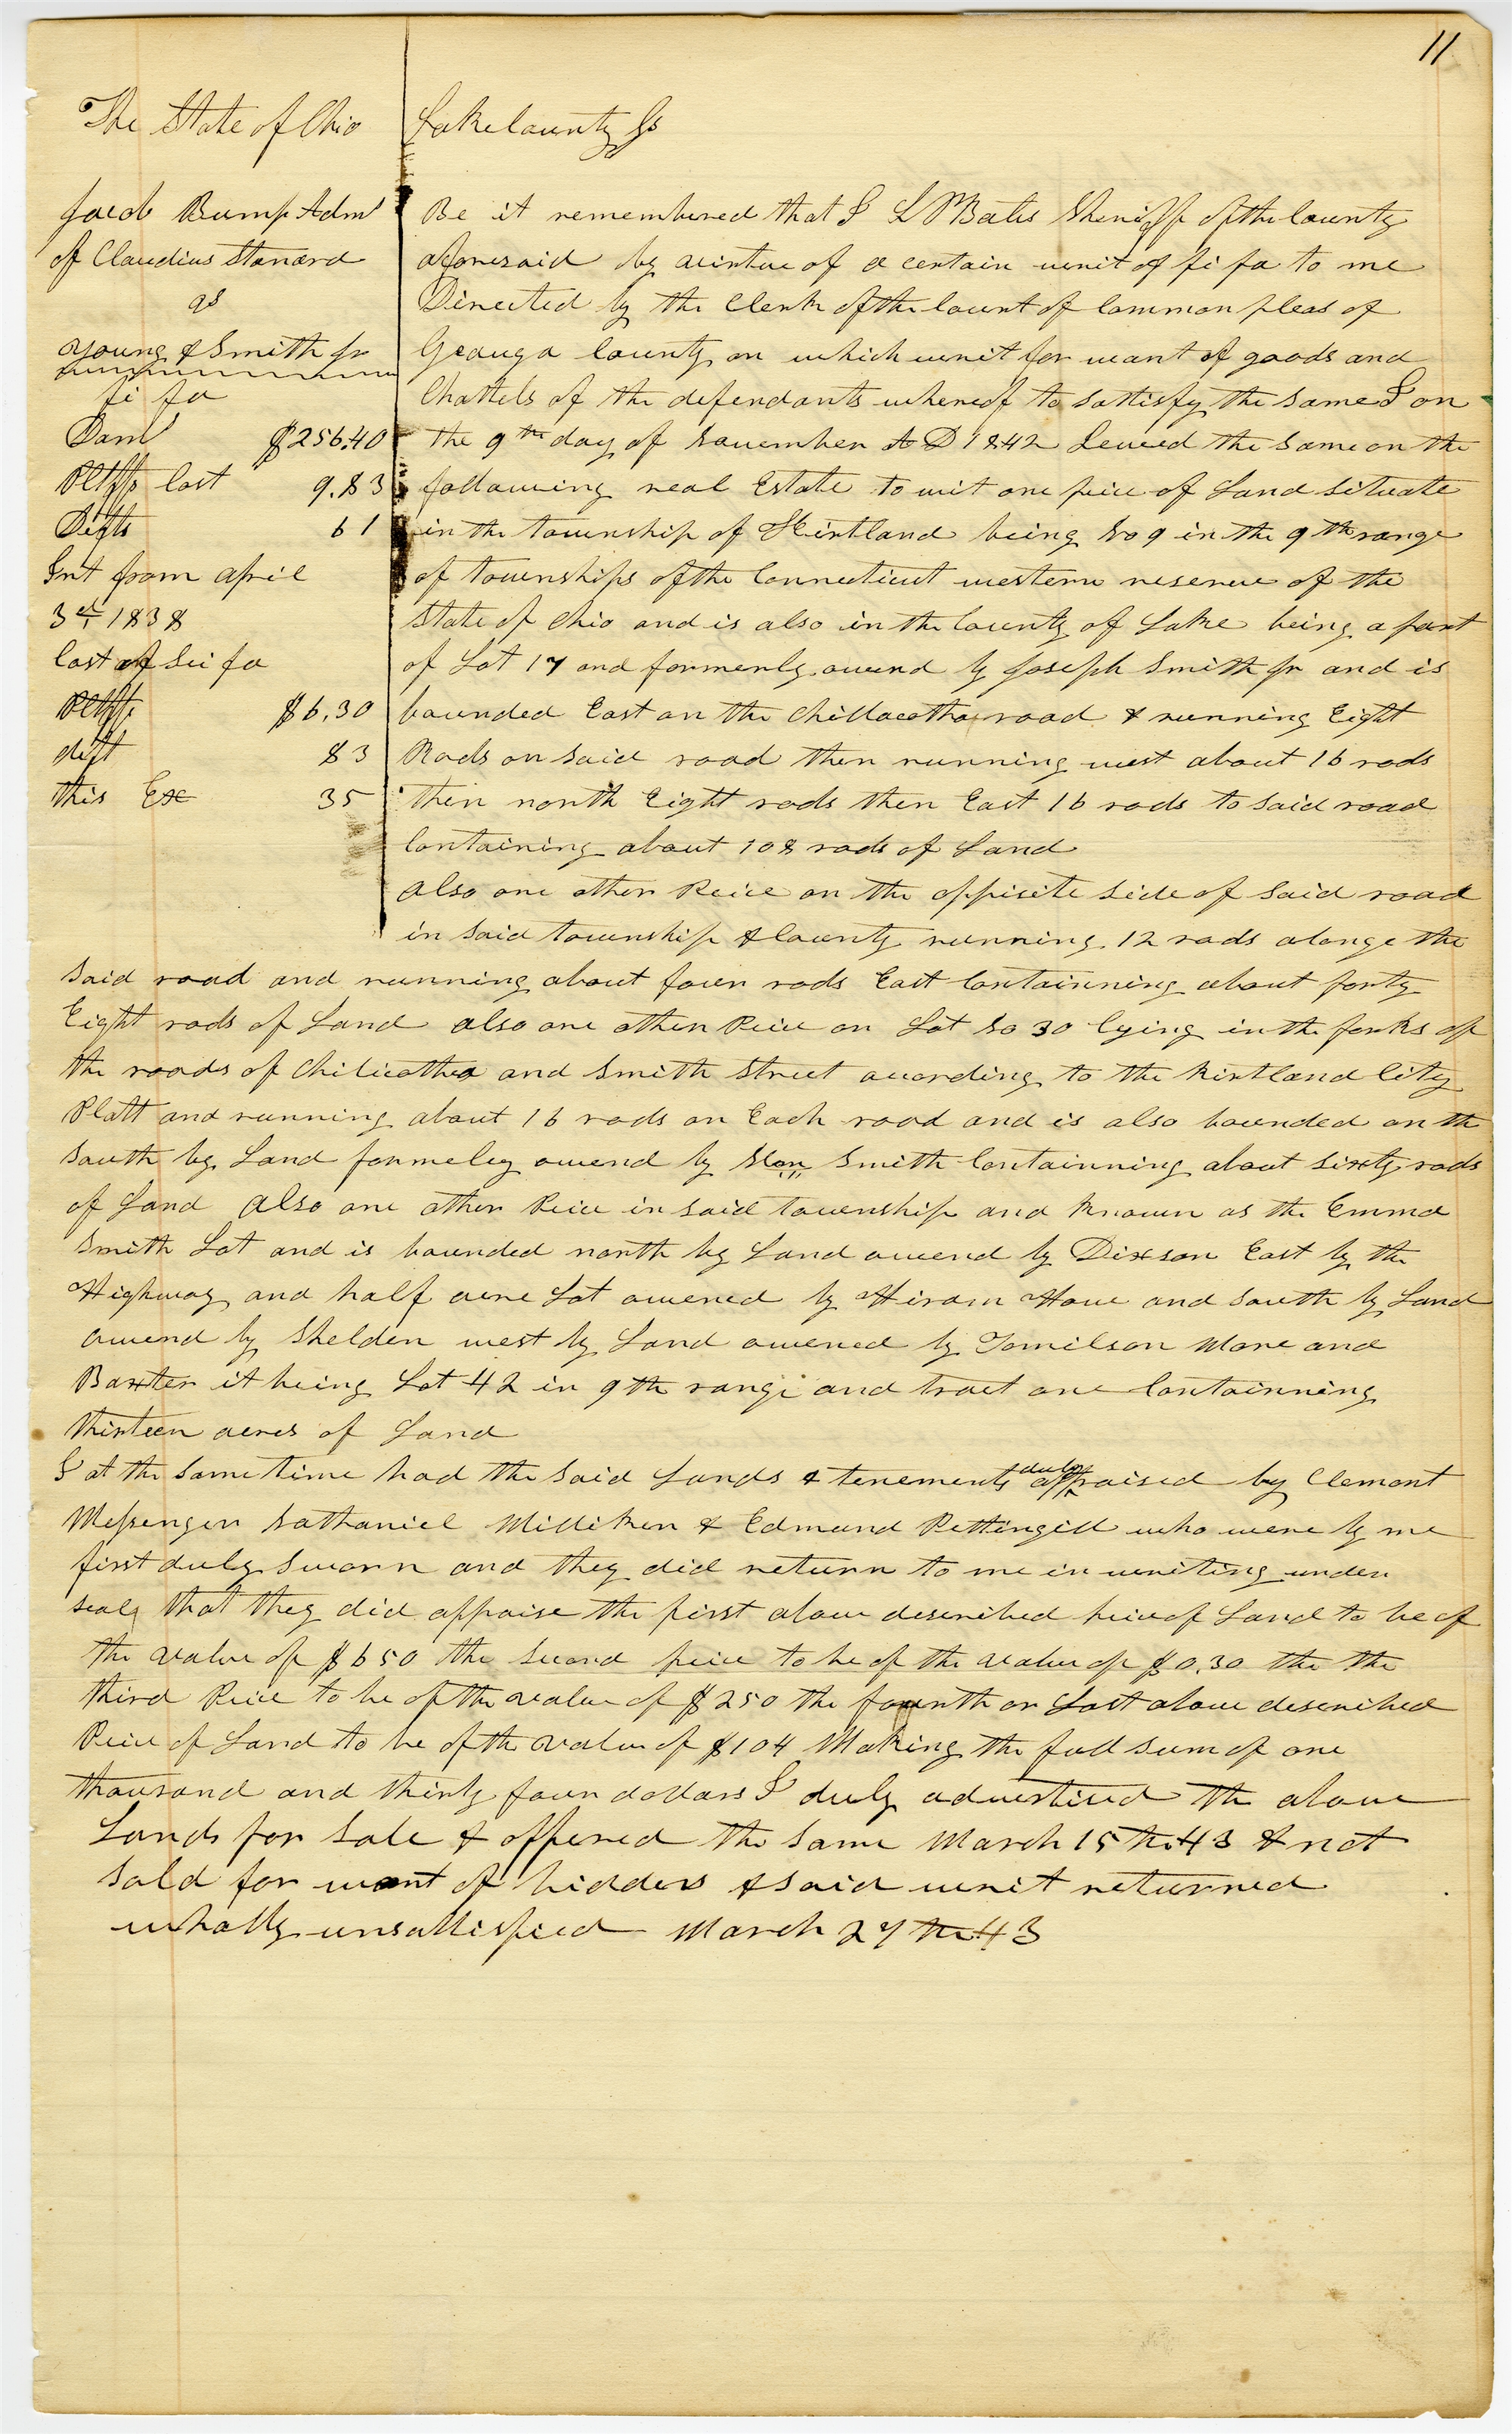 11
The State of Ohio Lake County Ss
Jacob Bump Adm^r
of Claudius Stanard
vs
Young & Smith Jr
fi fa
Dam^s $256.40
Pltffs Cost 9.83
Defts 61
Int from April
3rd 1838
Cost of Sci fa
Pltffs $6.30
deft 83
this Exe 35
Be it remembered that I L M Bates Sheriff of the County
aforesaid by virtue of a certain writ of fi fa to me
Directed by the Clerk of the Court of Common pleas of
Geauga County on which writ for want of goods and
Chattels of the defendants whereof to sattisfy the same I on
the 9th day of November A D 1842 Levied the same on the
following real Estate to wit one peice of Land situate
in the township of Kirtland being No 9 in the 9th range
of townships of the Connecticut western reserve of the
State of Ohio and is also in the County of Lake being a part
of Lot 17 and formerly owend by Joseph Smith Jr and is
bounded East on the Chillacotha road & running Eight
Rods on said road then running west about 16 rods
then north Eight rods then East 16 rods to said road
Containing about 108 rods of Land
also one other Peice on the oppisite side of said road
in said township & County running 12 rods alonge the
said road and running about four rods East Containning about forty
Eight rods of Land also one other Peice on Lot No 30 lying in the forks of
the roads of Chilicothea and Smith Street acording to the Kirtland City
Platt and running about 16 rods on Each road and is also bounded on the
South by Land formeley owend by Smith Containning about sixty rods
of Land also one other Peice in said township and known as the Emma
Smith Lot and is bounded north by Land owend by Dixson East by the
Highway and half acre Lot owened by Hiram Howe and South by Land
owend by Shelden west by Land owened by Tomilson More and
Baxter it being Lot 42 in 9th range and tract one Containning
thirteen acres of Land
I at the same time had the said Lands & tenements duly appraised by Clemont
Messenger Nathaniel Milliken & Edmund Pettingill who were by me
first duly sworn and they did return to me in writing under
seals that they did appraise the first above described peice of Land to be of
the value of $650 the second peice to be of the value of $0.30 the the
third Peice to be of the value of $250 the fourth or Last above described
Peice of Land to be of the value of $104 Making the full sum of one
thousand and thirty four dollars I duly advertised the above
Lands for sale & offered the same March 15th 43 & not
sold for want of bidders & said writ returned
wholly unsattisfied March 27th 43